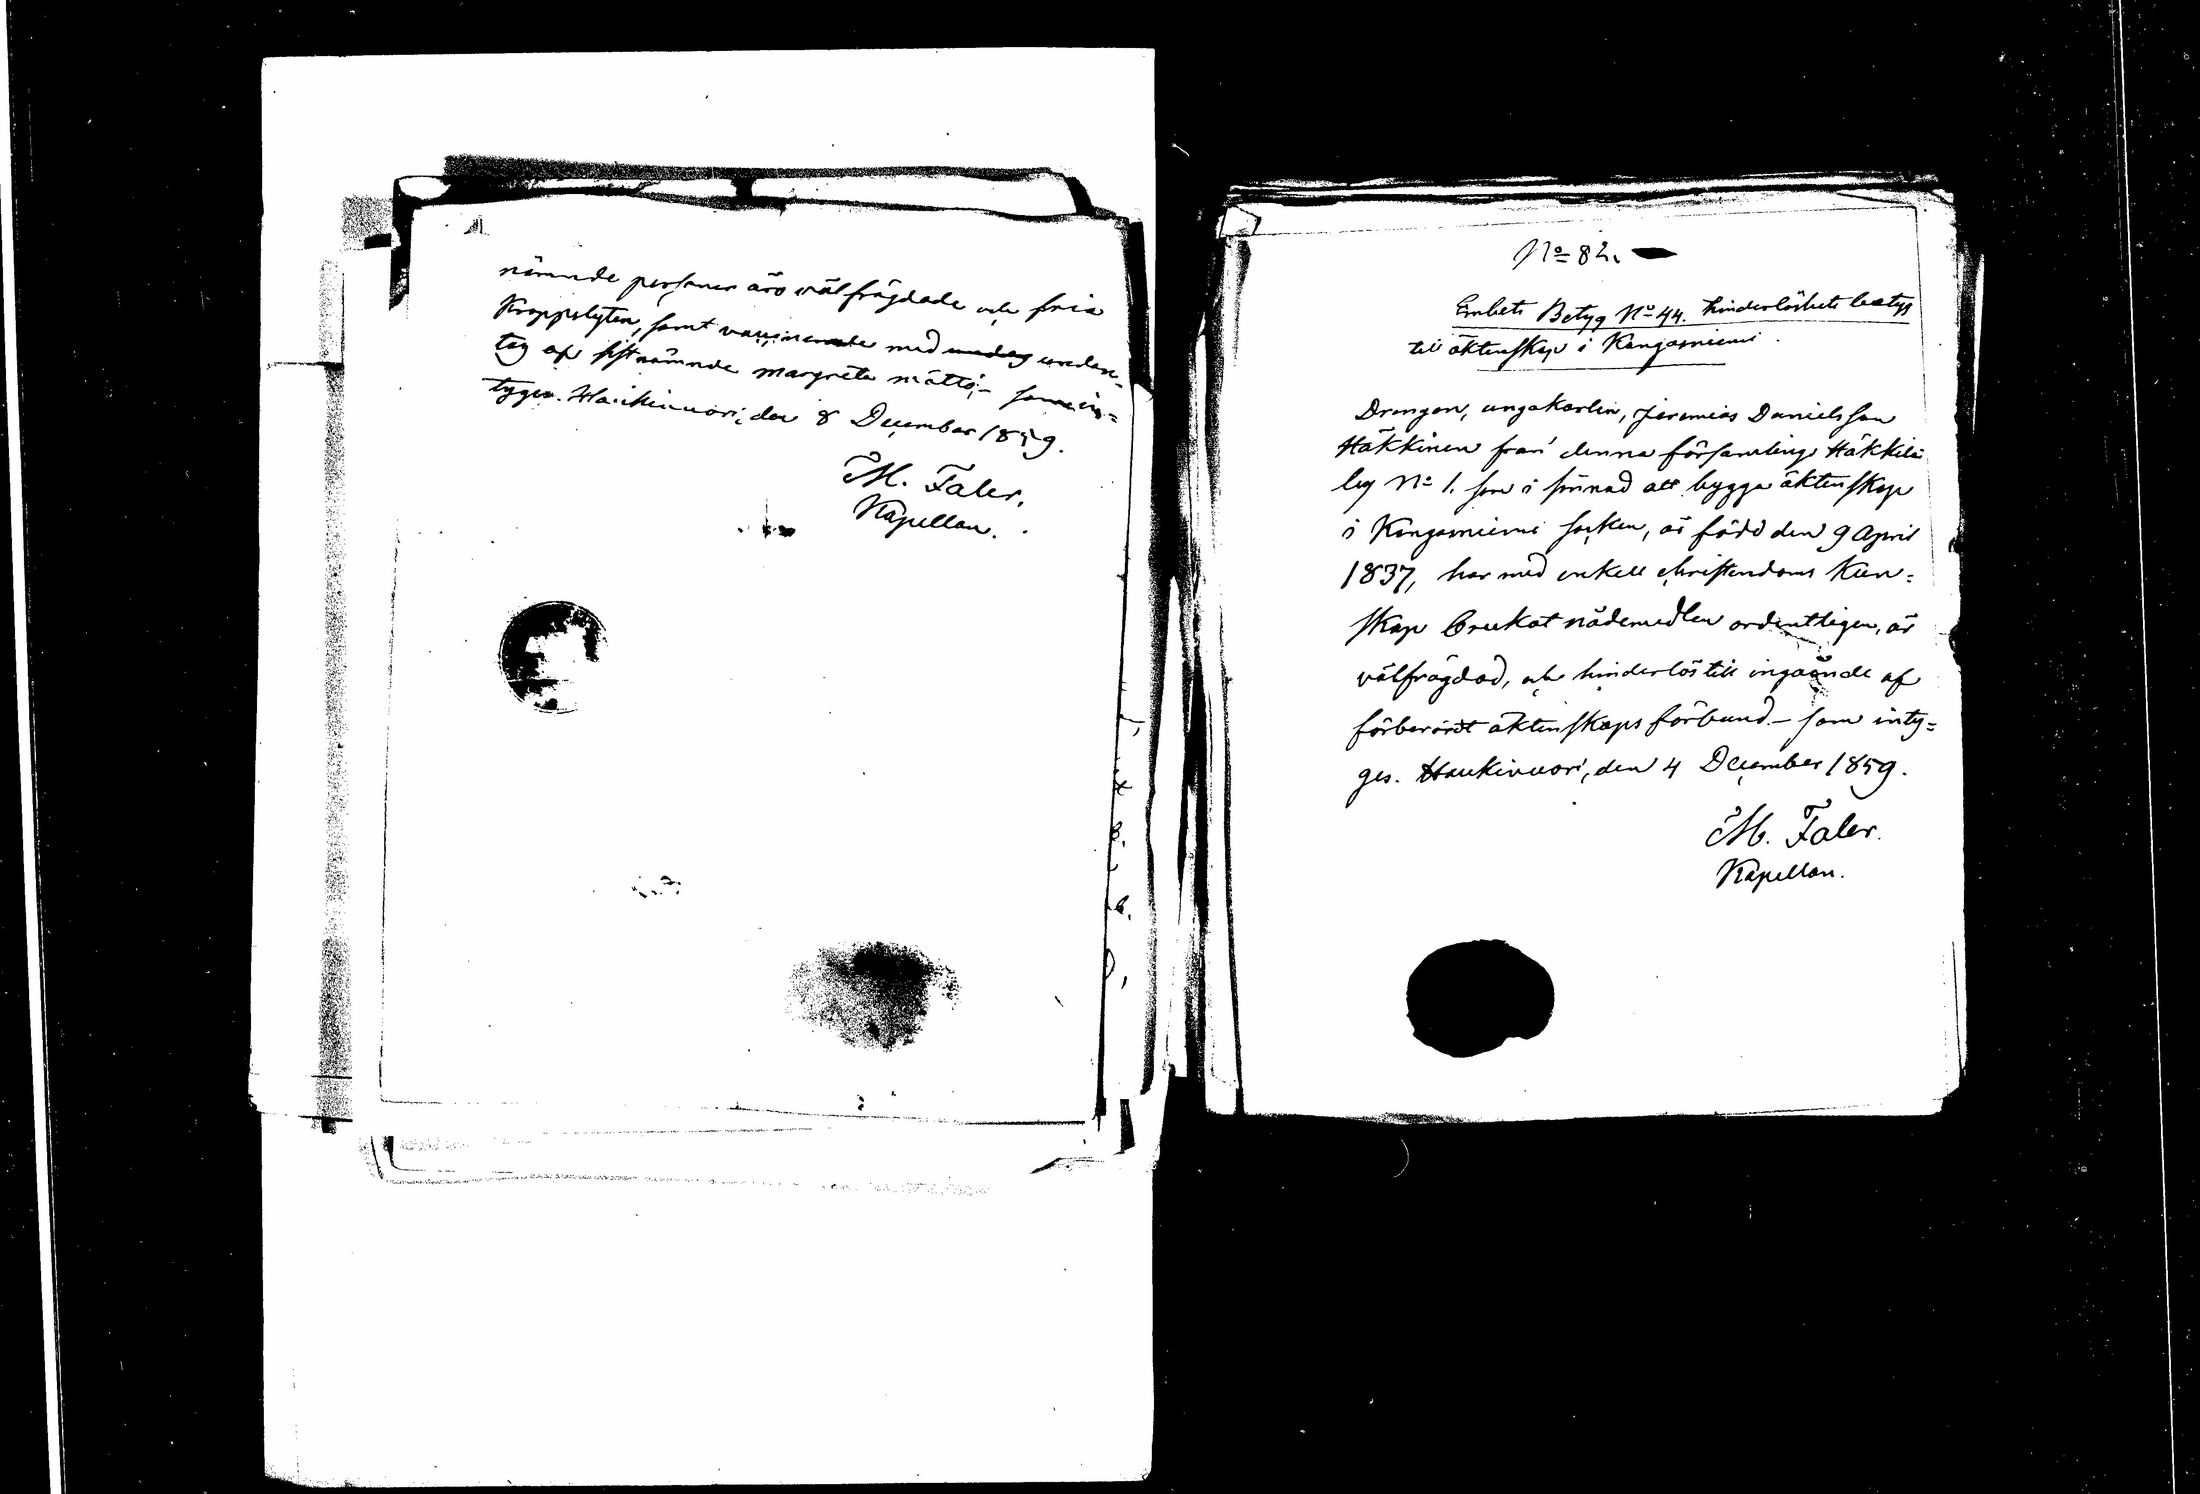 nämnde personer äro välfrägdade och fria
Kroppslyten, samt vaccinerade med undan-
tag af sistnämnde Margreta Mättö; – som in=
tygas. Haukivuori, den 8 December 1859.
M. Faler.
Kapellan.
No 82.
Embets Betyg No 44. hinderlöshets betyg
till äktenskap i Kangasniemi.
Drängen, ungakarlen, Jeremias Danielsson
Häkkinen från denna församlings Häkkilä
by No 1. som i sinnad att bygga äktenskap
i Kangasniemi socken, är född den 9 April
1837, har med enkell christendoms Kun=
skap brukat nådemedlen ordentligen, är
välfrägdad, och hinderlös till ingående af
förberördt äktenskaps förbund – som inty=
ges. Haukivuori, den 4 December 1859.
M. Faler.
Kapellan.